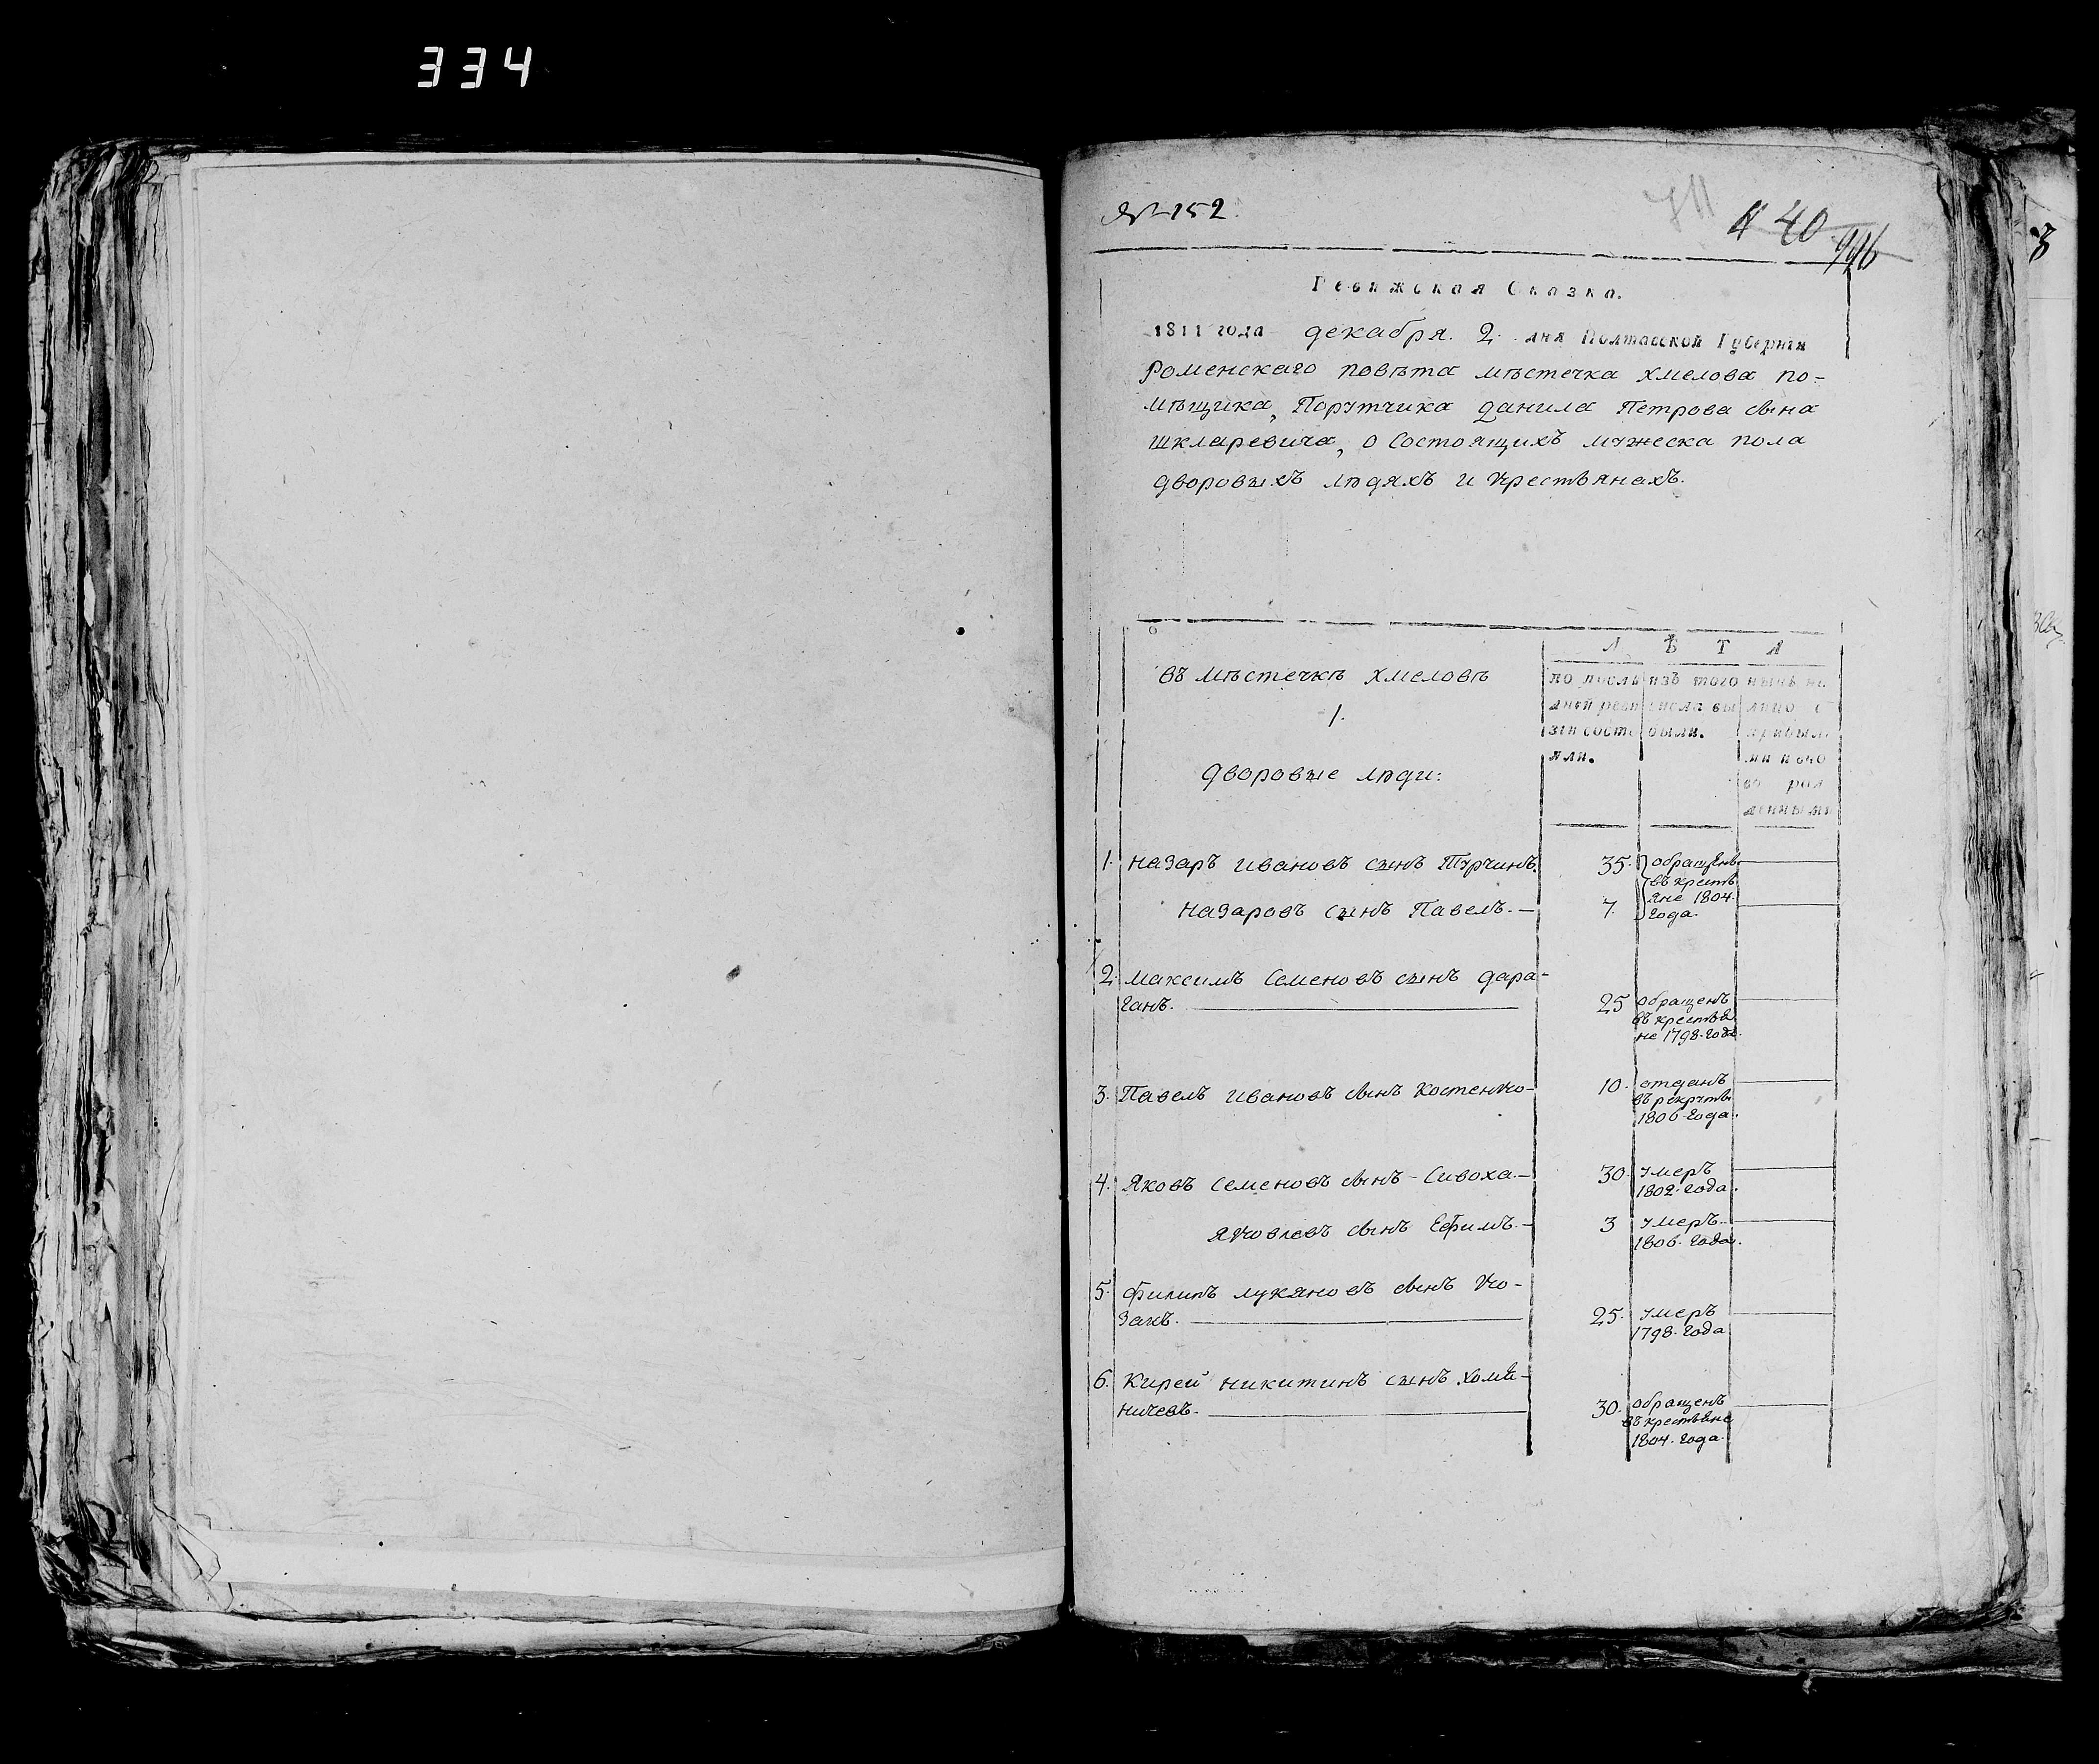 334
№ 152.
№ 40
Ревижская Сказка.
1811 года декабря. 2. дня Полтавской Губерніи
Роменскаго повѣта мѣстечка хмелова по-
мѣщика, Порутчика данила Петрова сына
шкларевича, о состоящихъ мужеска пола
дворовыхъ людяхъ и крестьянахъ.
въ мѣстечкѣ хмеловѣ
1.
дворовые люди:
Л Ѣ Т А
по послѣ
дней реви
зіи состо
яли.
изъ того
числа вы
были.
нынѣ на
лицо с
прибыл
ми и ѣчо
во рож
денными
1. назаръ ивановъ сынъ Турчинъ. 35. обращены
въ кресть
яне 1804.
года.
назаровъ сынъ Павелъ. — 7.
2. максимъ семеновъ сынъ дара-
ганъ. 25 обращенъ
въ крестья
не 1798. года.
3. Павелъ ивановъ сынъ костенко- 10. отданъ
въ рекруты
1806. года.
4. Яковъ семеновъ сынъ - Сивоха. — 30. умеръ
1802. года.
яковлевъ сынъ Ефимъ. - 3 умеръ.
1806. года.
5. филипъ лукяновъ сынъ ко-
закъ. 25. умеръ
1798. года
6. Кирей никитинъ сынъ хомѣ-
ничевъ. 30. обращенъ
въ крестьяне
1804. года.